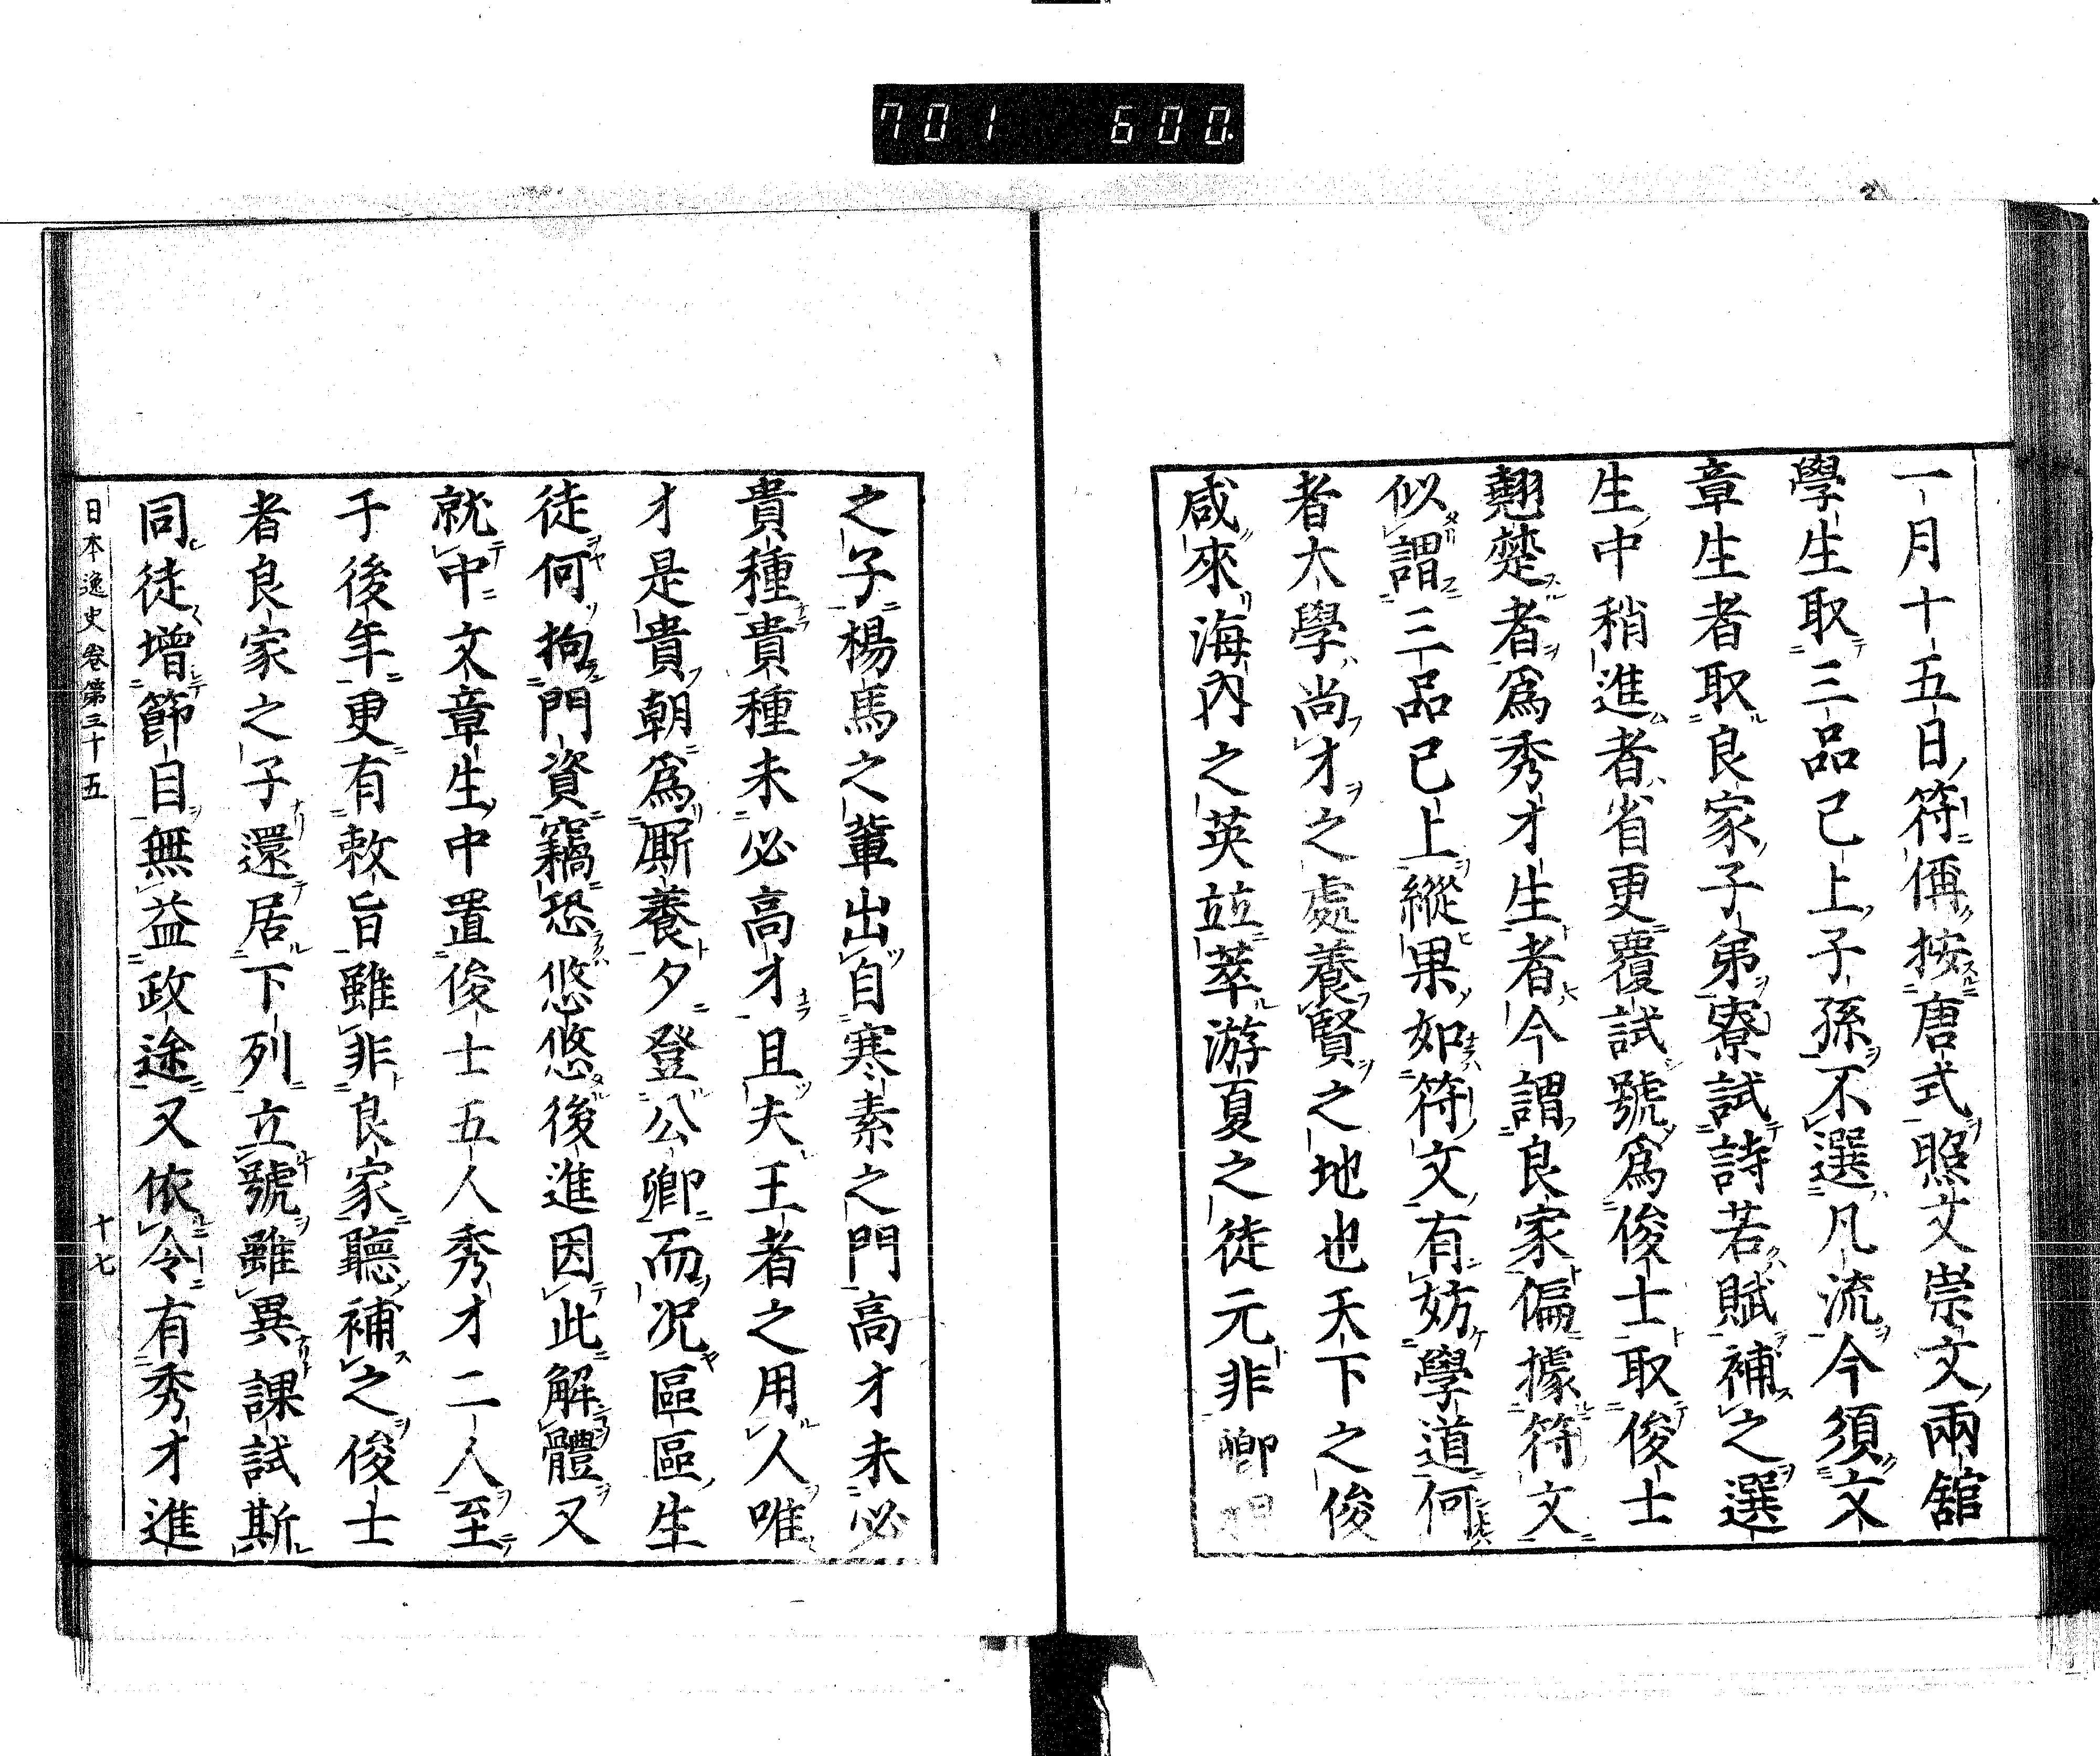 701 600
一月十五日符偁按唐式照文崇文兩舘
學生取三品已上子孫不選凡流今須文
章生者取良家子弟寮試詩若賦補之選
生中稍進者省更覆試號爲俊士取俊士
翹楚者爲秀才生者今謂良家偏據符文
似謂三品已上縱果如符文有妨學道何
者大學尚才之處養賢之地也天下之俊
咸來海內之英竝萃游夏之徒元非卿相
之子楊馬之輩出自寒素之門高才未必
貴種貴種未必高才且夫王者之用人唯
才是貴朝爲厮養夕登公卿而况區區生
徒何拘門資竊恐悠悠後進因此解體又
就中文章生中置俊士五人秀才二人至
于後年更有敕旨雖非良家聽補之俊士
者良家之子還居下列立號雖異課試斯
同徒增節目無益政途又依令有秀才進
日本逸史卷第三十五 十七